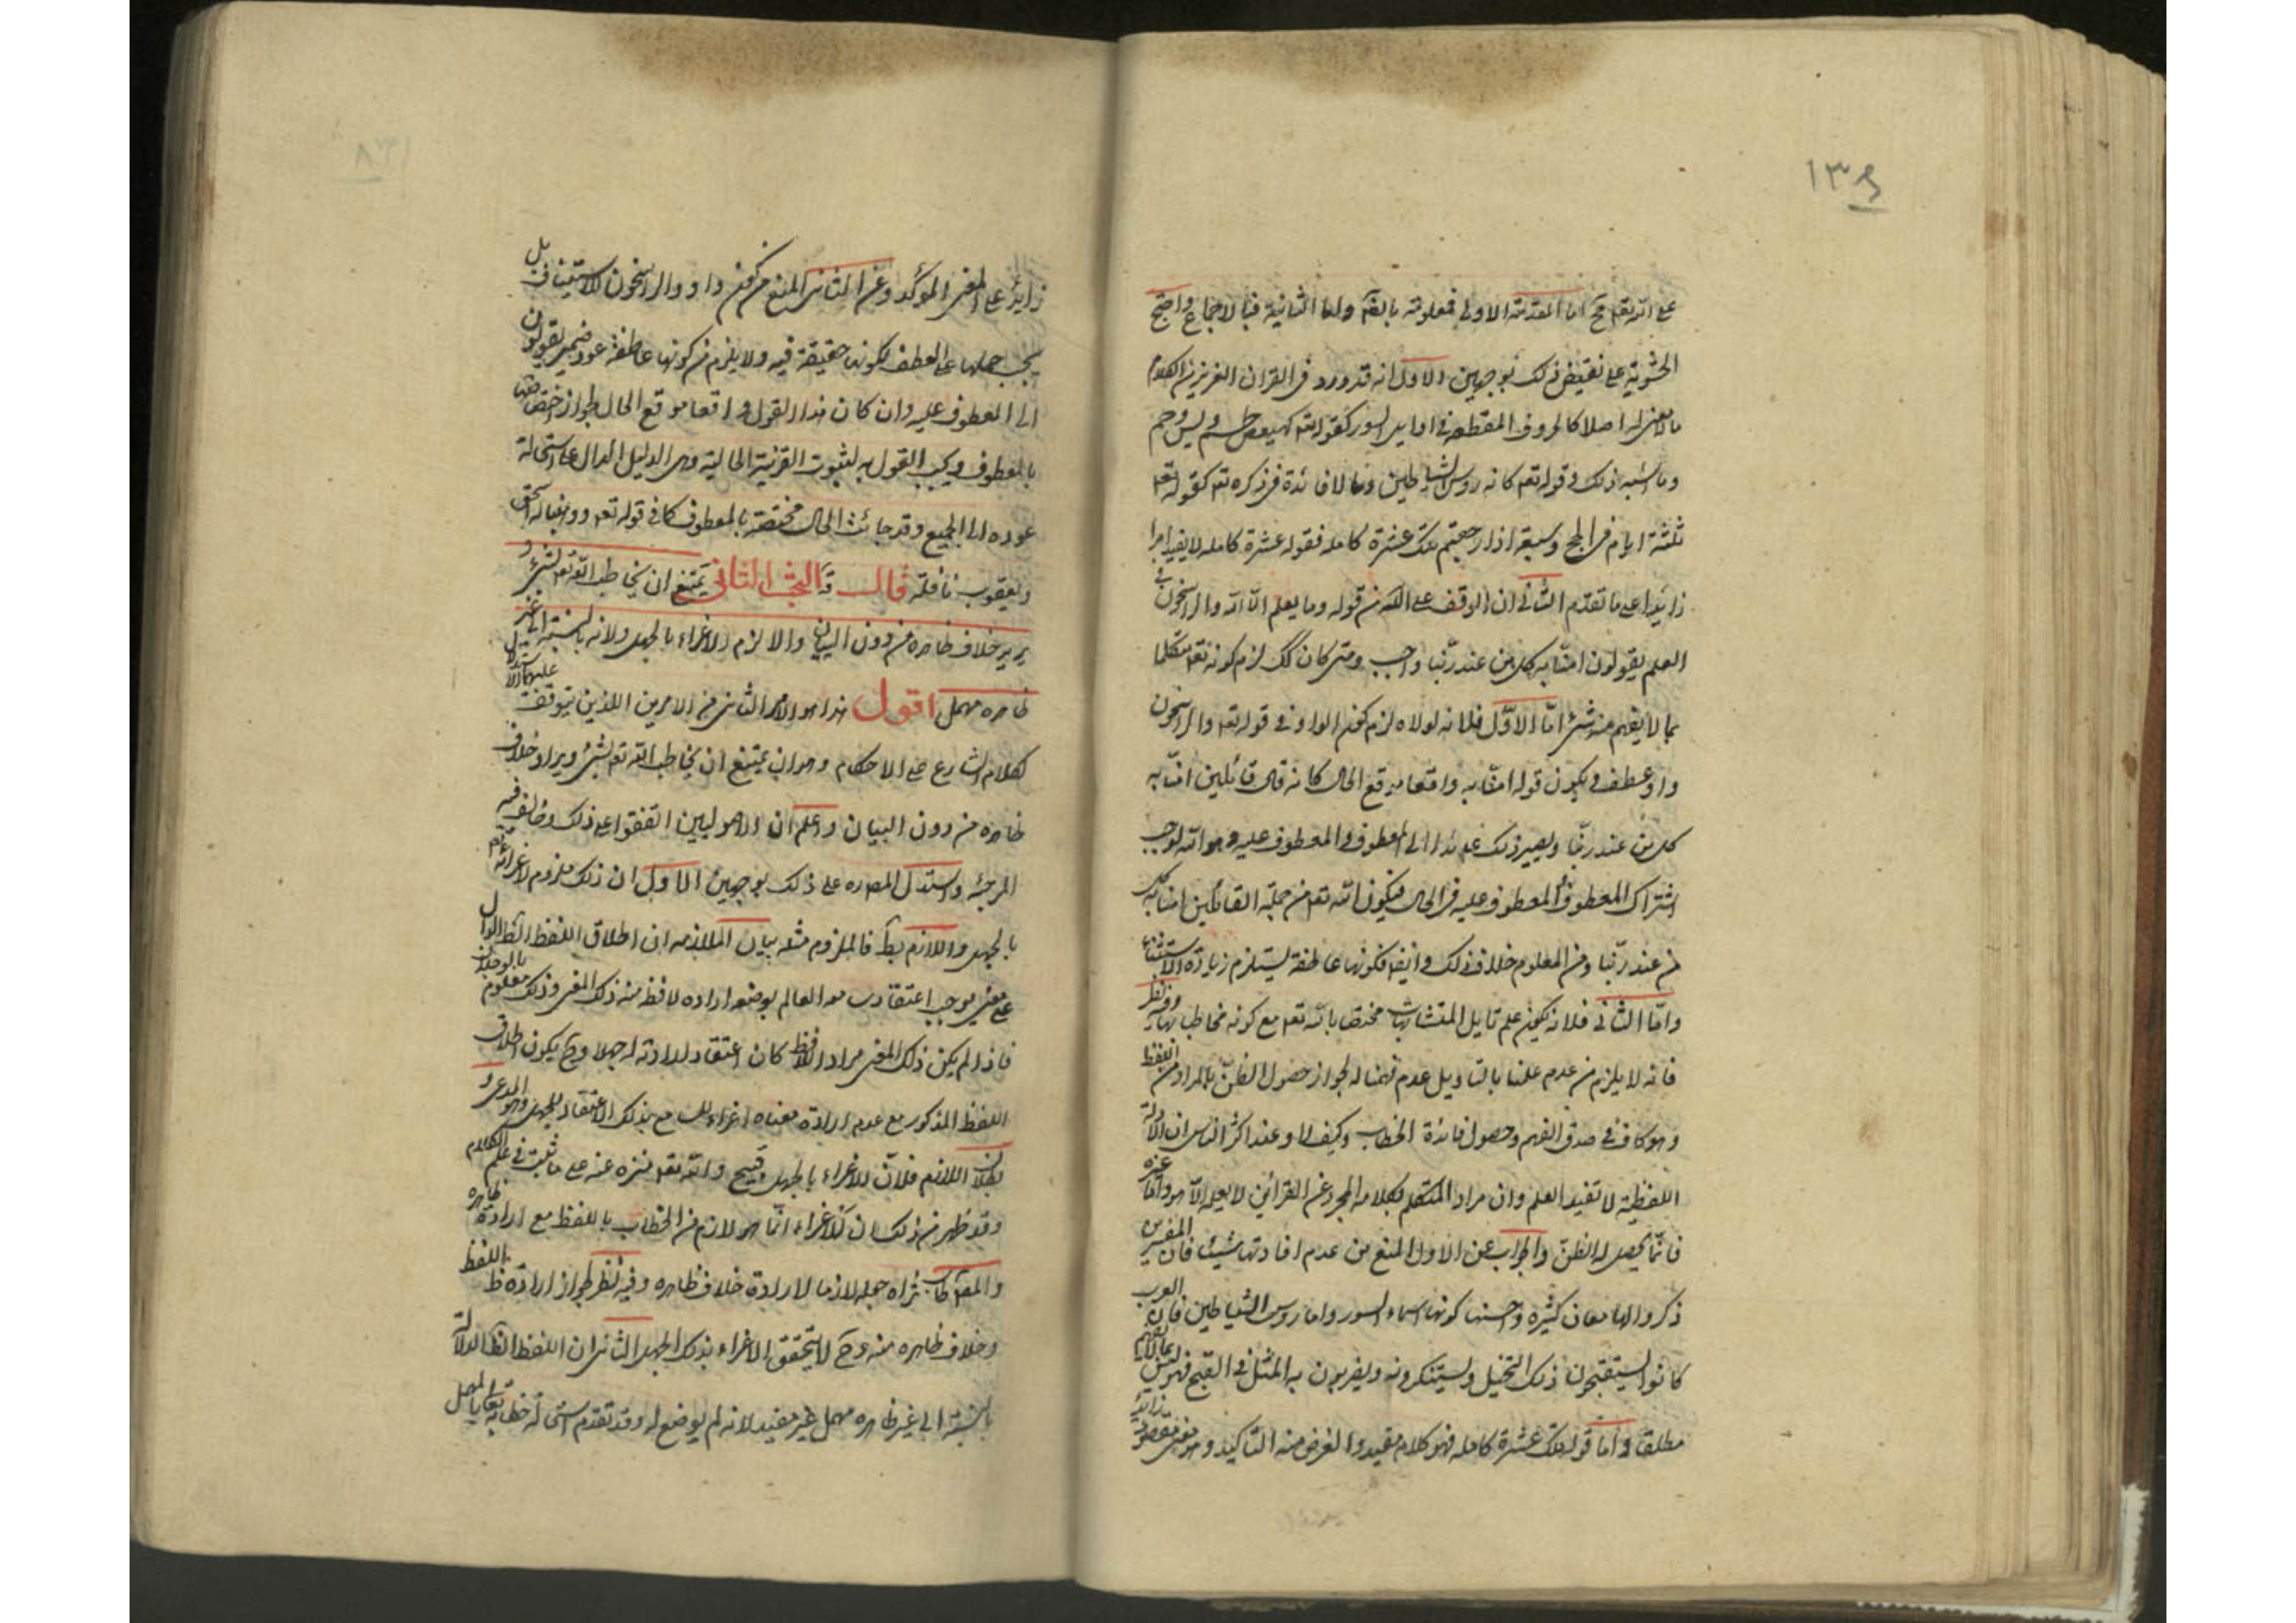 ١٣٥
على الله تعه مح اما المقدمة الاولى فمعلومة بالضرورة واما الثانية فبالاجماع واحتج
الحشوية على نقيض ذلك بوجهين الاول انه قد ورد في القران العزيز من الكلام
ما لا معنى له اصلا كالحروف المقطعة في اوايل السور كقوله تعه كهيعص وطسم ويس وحم
وما اشبه ذلك وقوله تعه كانه رؤس الشياطين ومما لا فائدة في ذكره تعه كقوله تعه
ثلثة ايام في الحج وسبعة اذا رجعتم تلك عشرة كاملة فقوله عشرة كامله لا يفيد امرا
زايدا على ما تقدم الثاني ان الوقف على الله من قوله وما يعلم الا الله والراسخون في
العلم يقولون امنا به كل من عند ربنا واجب ومتى كان كك لزم كونه تعه متكلما
بما لا يفهم منه شئ اما الاول فلانه لولاه لزم كون الواو في قوله تعه والراسخون
واو عطف ويكون قوله امنا به واقعا موقع الحال كانه قال قائلين امنا به
كل من عند ربنا ويصير ذلك عائدا الى المعطوف والمعطوف عليه وهو الله لوجوب
اشتراك المعطوف والمعطوف عليه في الحال فيكون الله تعه من جملة القائلين امنا به كل
من عند ربنا ومن المعلوم خلاف ذلك وايضا فكونها عاطفة يستلزم زيادة الاستثناء
واما الثاني فلانه يكون علم تاويل المتشابهات مختصا بالله تعه مع كونه مخاطبا بها وفيه نظر
فانه لا يلزم من عدم علمنا بالتاويل عدم فهمنا له لجواز حصول الظن بالمراد من اللفظ
وهو كاف في صدق الفهم وحصول فائدة الخطاب وكيف لا وعند اكثر الناس ان الادلة
اللفظية لا تفيد العلم وان مراد المتكلم بكلامه المجرد عن القرائن لا يعلمه الا هو واما غيره
فانما يحصل له الظن والجواب عن الاول المنع من عدم افادتها شيئا فان المفسرين
ذكروا لها معان كثيره واحسنها كونها اسماء السور واما رؤس الشياطين فان العرب
كانوا يستقبحون ذلك التخيل ويستنكرونه ويضربون به المثل في القبح فهو ليس بما لا يفهم
مطلقا واما قوله تلك عشرة كامله فهو كلام مفيد والغرض منه التاكيد وهو معنى مقصود زايد
زايد على المعنى المؤكد وعن الثاني المنع من كون واو والراسخون للاستيناف بل
يجب حملها على العطف لكونها حقيقة فيه ولا يلزم من كونها عاطفة عود ضمير يقولون
الى المعطوف عليه وان كان هذا القول واقعا موقع الحال لجواز اختصاصها
بالمعطوف ويجب القول به لثبوت القرينة الحالية وهى الدليل الدال على استحالة
عوده الى الجميع وقد جائت الحال مختصة بالمعطوف كما في قوله تعه ووهبنا له اسحق
ويعقوب نافلة قال البحث الثاني يمتنع ان يخاطب الله تعه بشئ و
يريد خلاف ظاهره من دون البيان والا لزم الاغراء بالجهل ولانه بالنسبة الى غير
ظاهره مهمل اقول هذا هو الامر الثاني من الامرين اللذين يتوقف عليهما الاستدلال
بكلام الشارع على الاحكام وهو انه يمتنع ان يخاطب الله تعه بشئ ويراد خلاف
ظاهره من دون البيان واعلم ان الاصوليين اتفقوا على ذلك وخالف فيه
المرجئة واستدل المصره على ذلك بوجهين الاول ان ذلك ملزوم لاغرائه تعه
بالجهل واللازم بط فالملزوم مثله بيان الملازمه ان اطلاق اللفظ الظ الدال
على معنى يوجب اعتقاد سامعه العالم بوضعه اراده لافظه منه ذلك المعنى وذلك معلوم بالوجدان
فاذا لم يكن ذلك المعنى مراد اللافظ كان اعتقاد ارادته له جهلا وح يكون اطلاق
اللفظ المذكور مع عدم ارادة معناه اغراء للسامع بذلك الاعتقاد للجهل وهو المدعى و
بطلان اللازم فلان الاغراء بالجهل قبيح والله تعه منزه عنه على ما ثبت في علم الكلام
وقد ظهر من ذلك ان الاغراء انما هو لازم من الخطاب باللفظ مع ارادة ظاهره
والمص طاب ثراه جعله لازما لارادة خلاف ظاهره وفيه نظر لجواز ارادة ظ اللفظ
وخلاف ظاهره منه وح لا يتحقق الاغراء بذلك الجهل الثاني ان اللفظ الظ الدلالة
بالنسبة الى غير ظاهره مهمل غير مفيد لانه لم يوضع له وقد تقدم استحالة خطابه تعالى بالمهمل